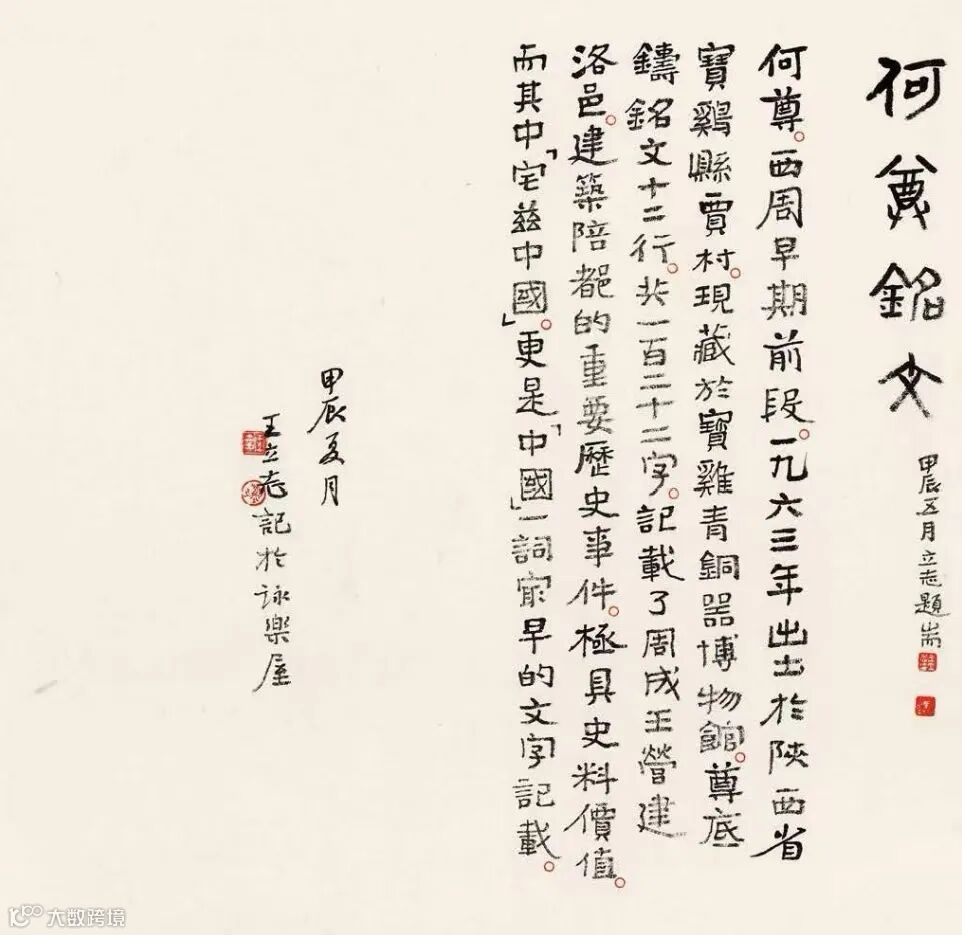 何尊銘文
甲辰五月立志題耑
何尊。西周早期前段。一九六三年出土於陝西省
寶鷄縣賈村。現藏於寶雞青銅器博物館。尊底
鑄銘文十二行。共一百二十二字。記載了周成王營建
洛邑。建築陪都的重要歷史事件。極具史料價值。
而其中「宅茲中國」。更是「中國」一詞最早的文字記載。
甲辰夏月
王立志記於詠樂屋
大数跨境